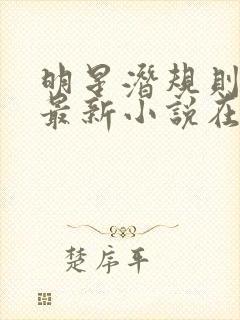 明星潛規則
最新小說在
楚席平